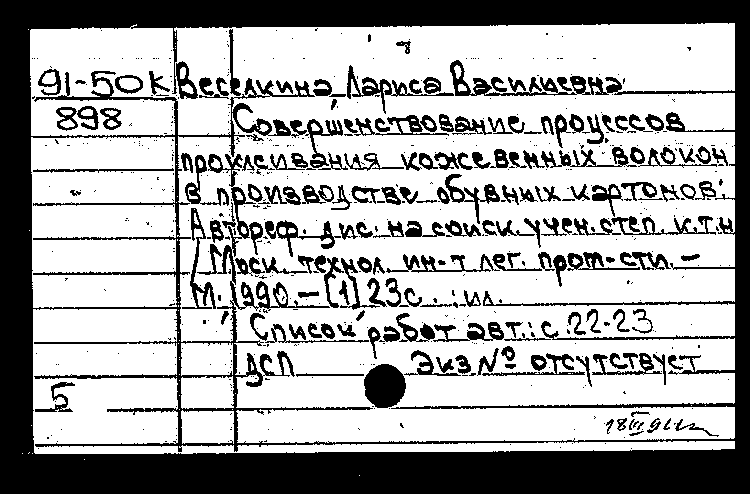 91-50К Веселкина Лариса Васильевна
898 Совершенствование процессов
проклеивания кожевенных волокон
в производстве обувных картонов:
Автореф. дис. на соиск. учен. степ. к.т.н
/ Моск. технол. ин-т лег. пром-сти. –
М. 1990. – [1] 23с. : ил.
Список работ авт.: с. 22-23
ДСП Экз № отсутствует
5